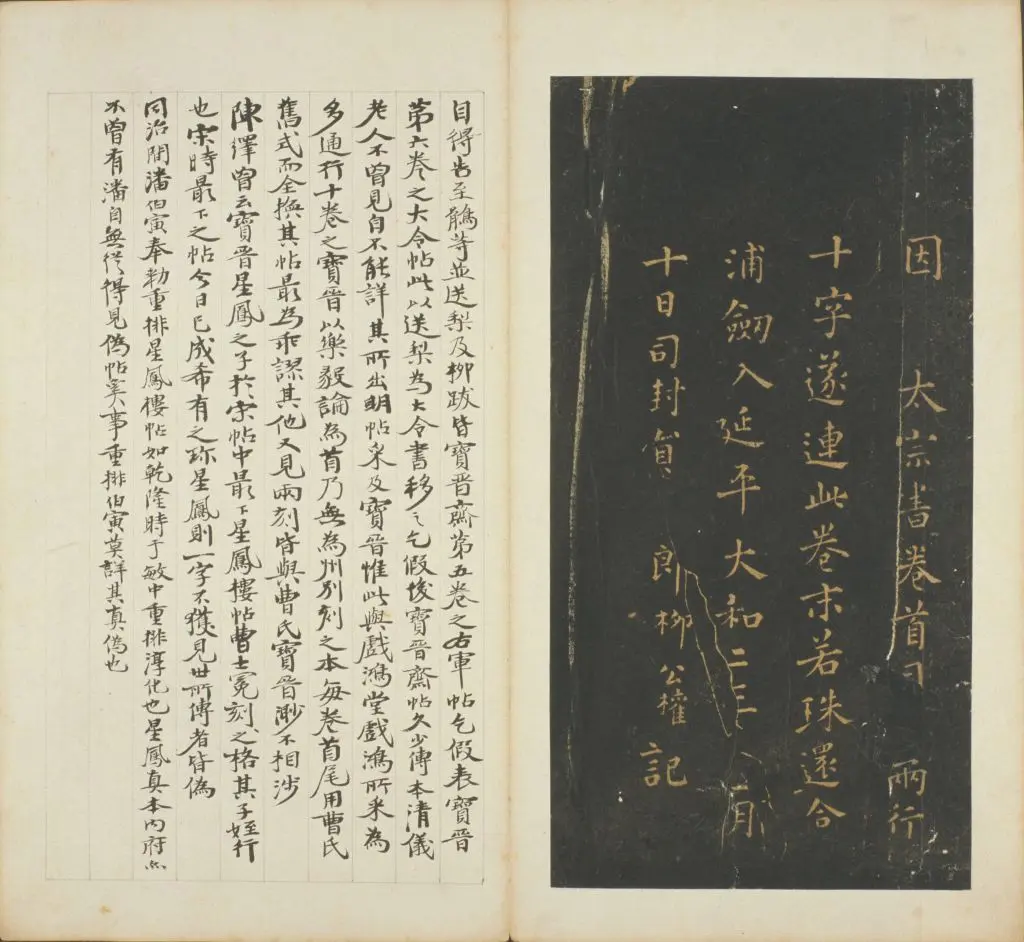 因 太宗書卷首 兩行
十字遂連此卷末若珠還合
浦劒入延平大和二年 月
十日司封員 郎柳公權記
目得告至鵝等並送梨及柳跋皆寶晉齋第五卷之右軍帖乞假表寶晉
第六卷之大令帖此以送梨為大令書移之乞假後寶晉齋帖久少傳本清儀
老人不曾見自不能詳其所出明帖采及寶晉惟此與戲鴻堂戲鴻所采為
多通行十卷之寶晉以樂毅論為首乃無為州別刻之本每卷首尾用曹氏
舊式而全換其帖最為乖謬其他又見兩刻皆與曹氏寶晉渺不相涉
陳繹曾云寶晉星鳳之子於宋帖中最下星鳳樓帖曹士冕刻之格其子姪行
也宋時最下之帖今日已成希有之珍星鳳則一字不獲見世所傳者皆偽
同治間潘伯寅奉勅重排星鳳樓帖如乾隆時于敏中重排淳化也星鳳真本內府亦
不曾有潘自無從得見偽帖奚事重排伯寅莫詳其真偽也